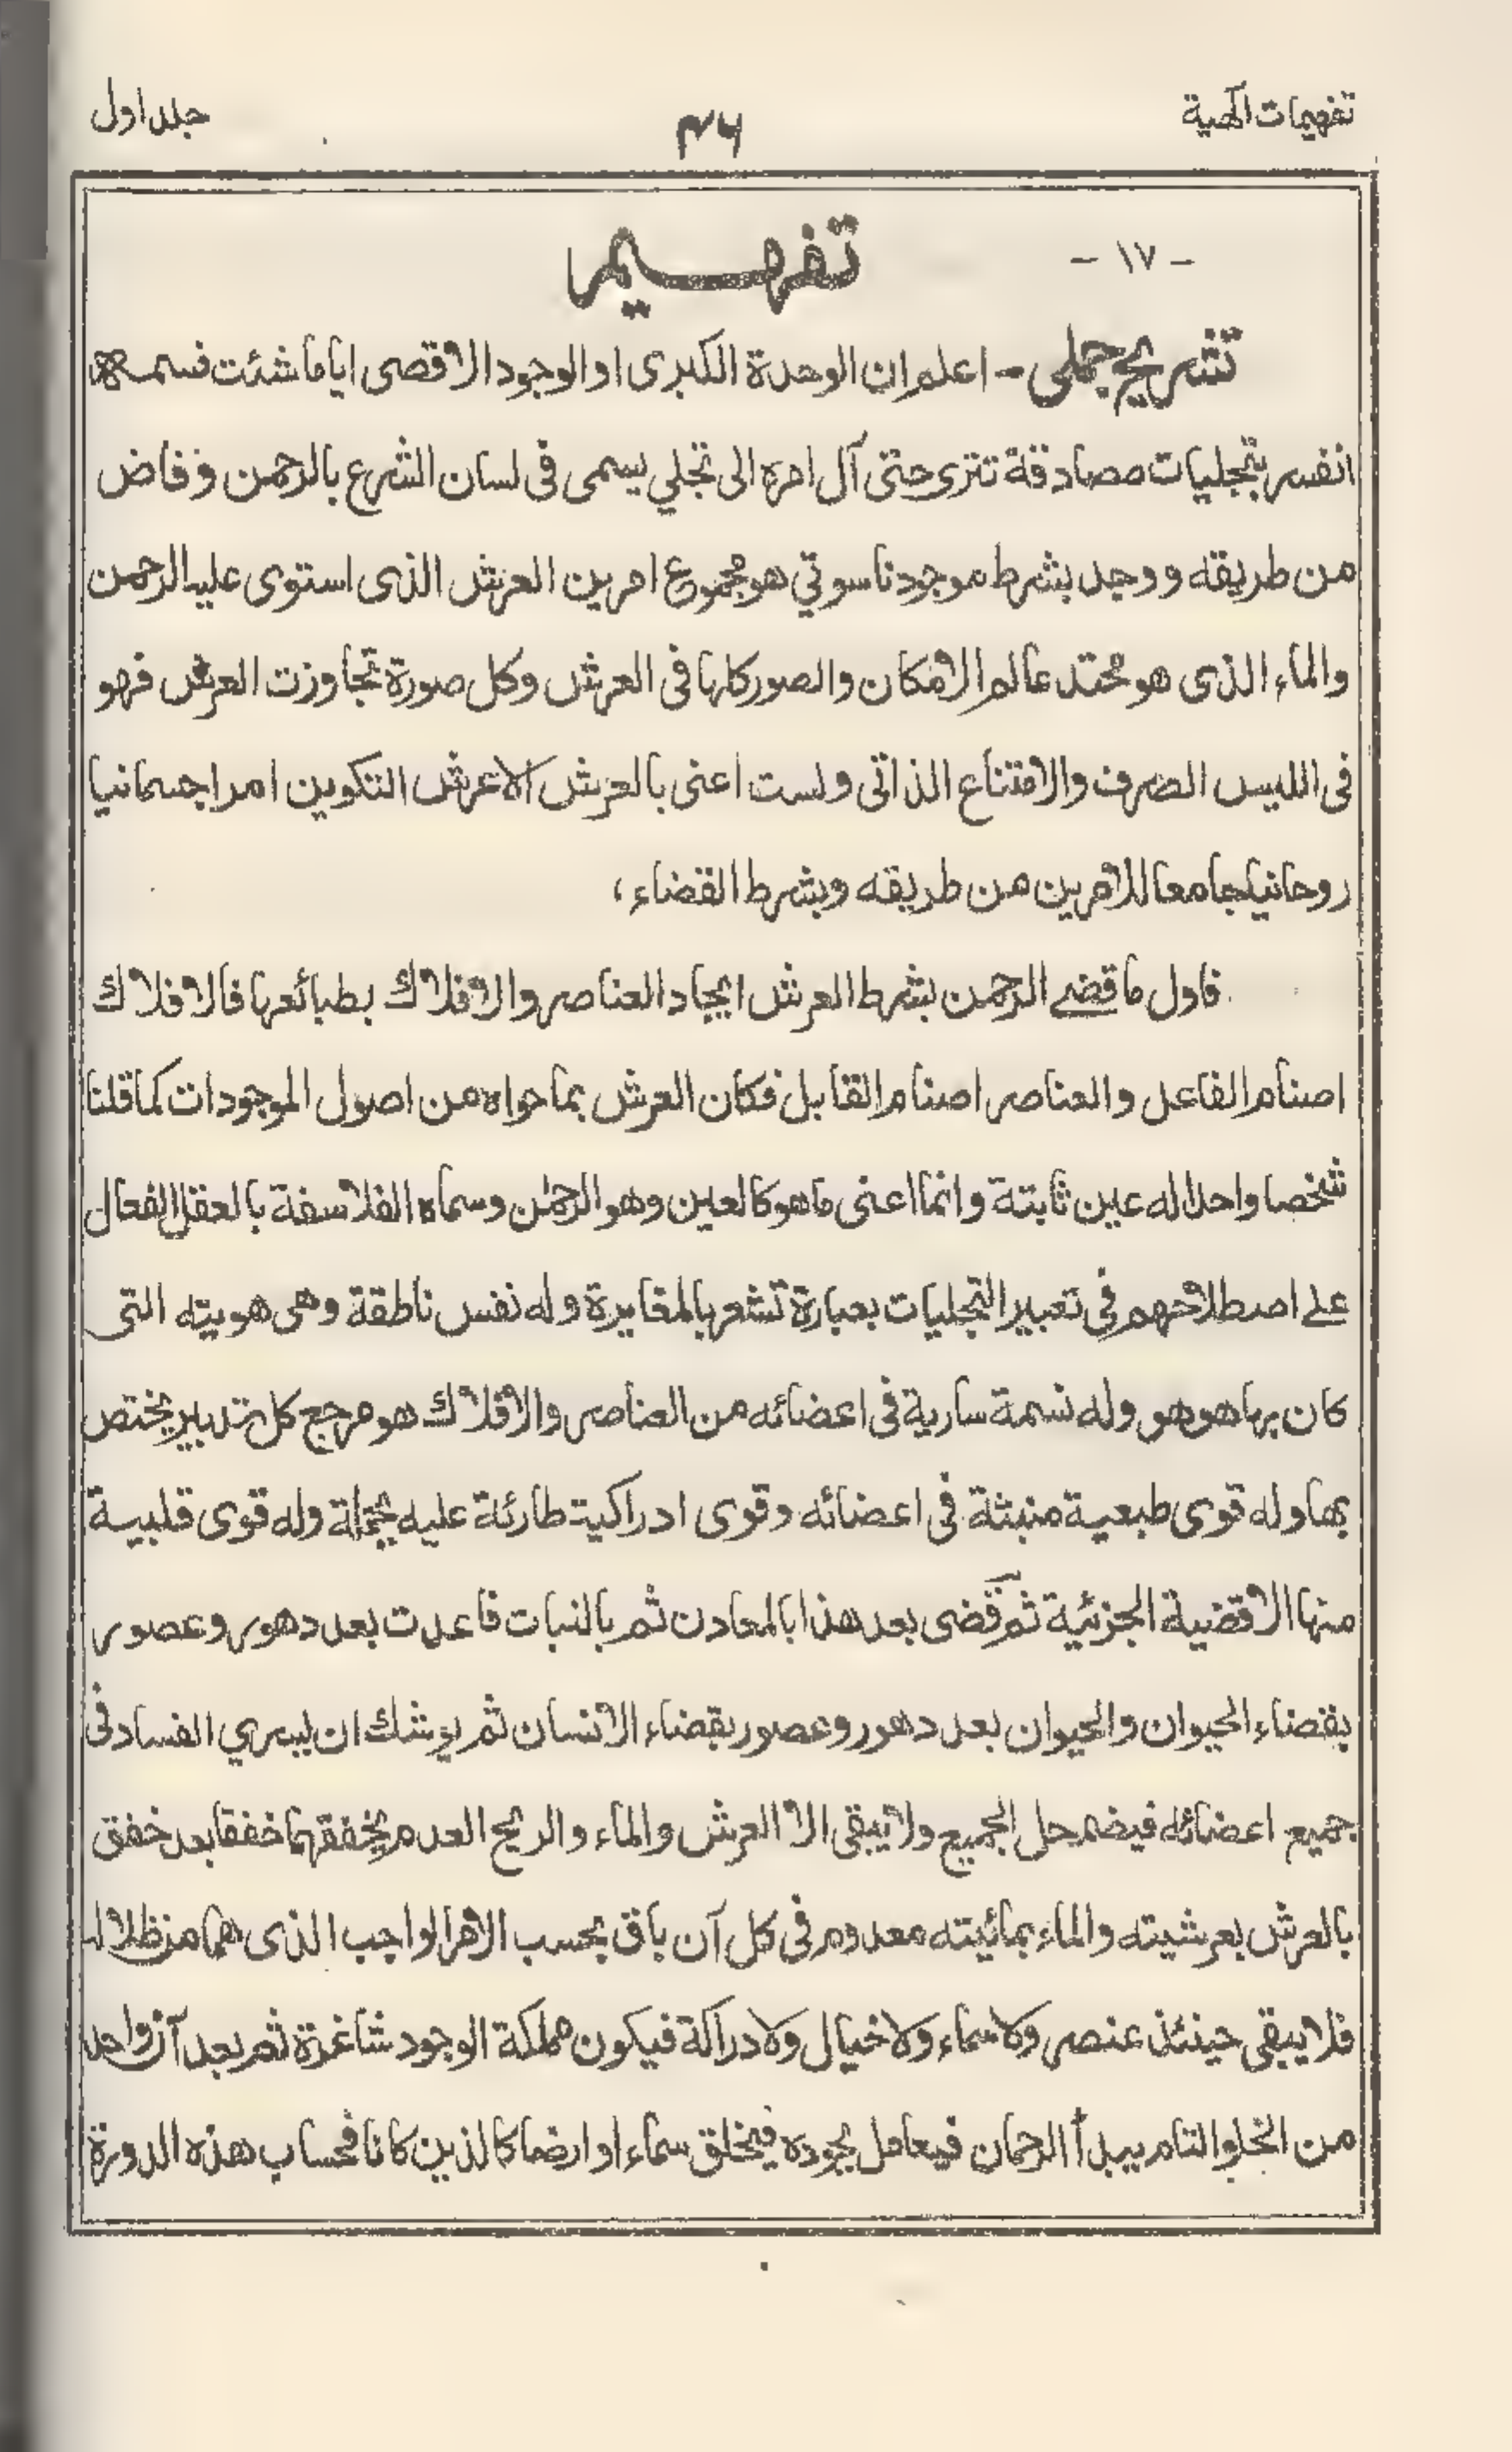 تفهيمات الٰهية ۴۶ جلد اول
- ١٧ - تفهـــيم
تشريح جملى - اعلم ان الوحدة الكبرى او الوجود الاقصى اياما شئت فسمــه
انفسر بتجليات مصادقة تترى حتى آل امره الى تجلي يسمى فى لسان الشرع بالرحمن وفاض
من طريقه ووجد بشرط موجود ناسوتي هو مجموع امرين العرش الذى استوى عليه الرحمن
والماء الذى هو محتد عالم الامكان والصور كلها فى العرش وكل صورة تجاوزت العرش فهو
فى الليس الصرف والامتناع الذاتى ولست اعنى بالعرش الا عرش التكوين امرا جسمانيا
روحانيا جامعا للامرين من طريقه وبشرط القضاء،
فاول ما قضى الرحمن بشرط العرش ايجاد العناصر والافلاك بطبائعها فالافلاك
اصنام الفاعل والعناصر اصنام القابل فكان العرش بما حواه من اصول الموجودات كما قلنا
شخصا واحدا له عين ثابتة وانما اعنى ما هو كالعين وهو الرحمٰن وسماه الفلاسفة بالعقل الفعال
على اصطلاحهم فى تعبير التجليات بعبارة تشعر بالمغايرة وله نفس ناطقة وهى هويته التى
كان بها هو هو وله نسمة سارية فى اعضائه من العناصر والافلاك هو مرجع كل تدبير يختص
بها وله قوى طبعية منبثة فى اعضائه وقوى ادراكية طارئة عليه بجملة وله قوى قلبية
منها الاقضية الجزئية ثم قضى بعد هذا بالمعادن ثم بالنبات فاعدت بعد دهور وعصور
بقضاء الحيوان والحيوان بعد دهور وعصور بقضاء الانسان ثم يوشك ان يسري الفساد فى
جميع اعضائه فيضمحل الجميع ولا يبقى الا العرش والماء والريح العدم يخفقهما خفقا بعد خفق
بالعرش بعرشيته والماء بمائيته معدوم فى كل آن باق بحسب الامر الواجب الذى هما من ظلاله
فلا يبقى حينئذ عنصر ولا سماء ولا خيال ولا دراكة فيكون مملكة الوجود شاغرة ثم بعد آن واحد
من الخلو التام يبدأ الرحمان فيعامل بجوده فيخلق سماء او ارضا كالذين كانا فحساب هذه الدورة